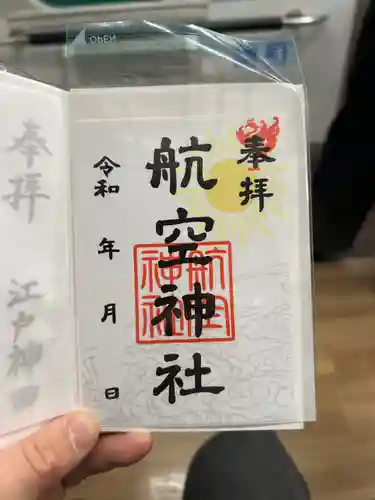 OPEN
奉拝
航空神社
令和 年 月 日
航空神社
奉拝
江戸神田